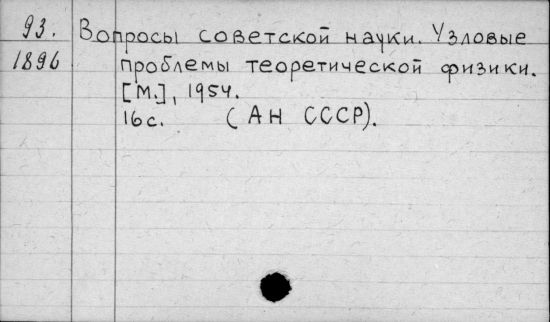 93. Вопросы советской науки. Узловые
1896 проблемы теоретической физики.
[М.], 1954.
16с. (АН СССР).